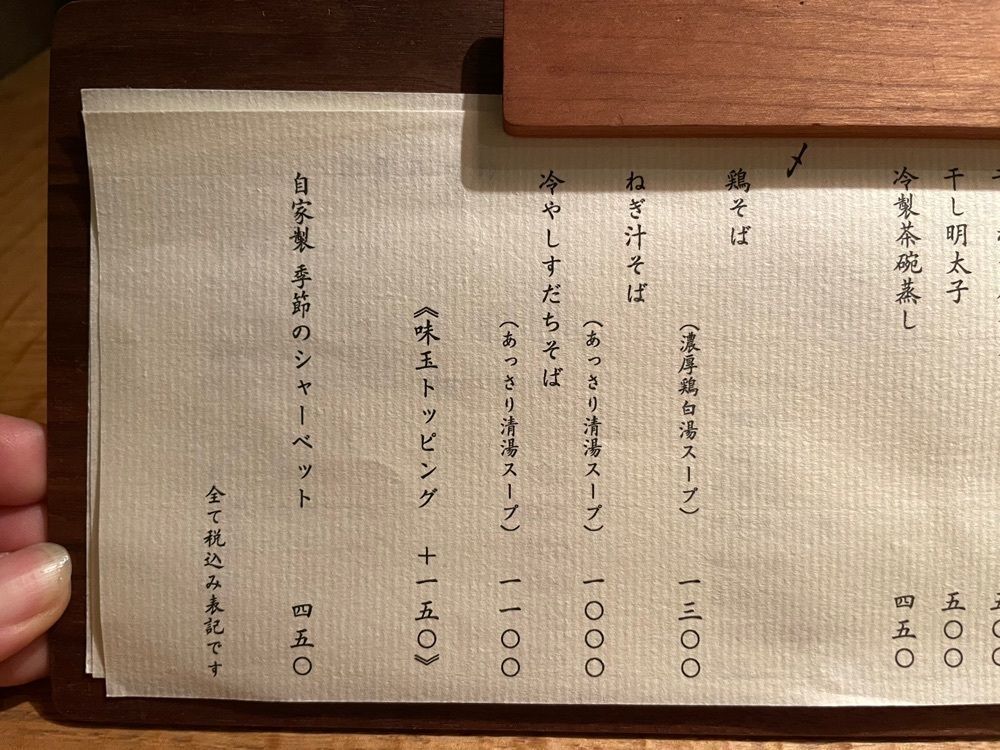 干し明太子 五〇〇
冷製茶碗蒸し 四五〇
〆
鶏そば
(濃厚鶏白湯スープ) 一三〇〇
ねぎ汁そば
(あっさり清湯スープ) 一〇〇〇
冷やしすだちそば
(あっさり清湯スープ) 一一〇〇
《味玉トッピング +一五〇》
自家製 季節のシャーベット 四五〇
全て税込み表記です